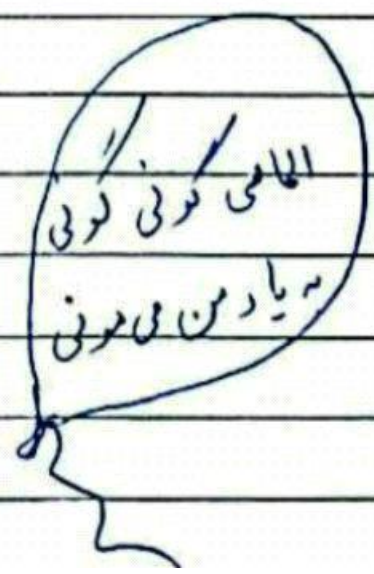 الماسی کونی گونی
به یاد من می مونی